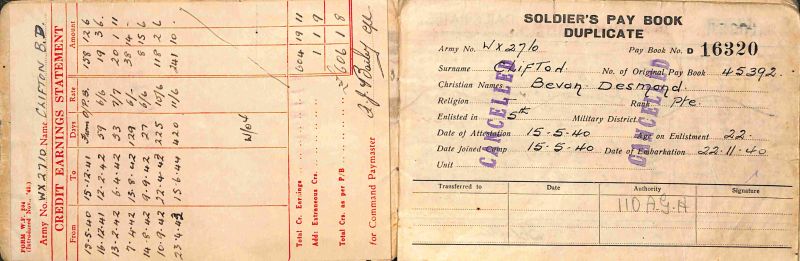 FORM W.F. 244
(Introduced Nov., '40)
Army No. WX2710 Name CLIFTON B.D.
CREDIT EARNINGS STATEMENT
From To Days Rate Amount
15-5-40 15-12-41 From O/P.B. 158 12 6
16-12-41 12-2-42 59 6/6 19 3 6
13-2-42 6-4-42 53 7/7 20 1 11
7-4-42 13-8-42 129 6/- 38 14 -
14-8-42 9-9-42 27 6/6 8 15 6
10-9-42 22-4-43 225 10/6 118 2 6
23-4-43 15-6-44 420 11/6 241 10
W/O4
Total Cr. Earnings 604 19 11
Add: Extraneous Crs. 1 1 9
Total Crs. as per P/B 606 1 8
for Command Paymaster
SOLDIER'S PAY BOOK
DUPLICATE
Army No. WX2710 Pay Book No. D 16320
Surname CLIFTON No. of Original Pay Book 45392.
Christian Names Bevan Desmond.
Religion Rank Pte.
Enlisted in 5th Military District.
Date of Attestation 15-5-40 Age on Enlistment 22
Date Joined Camp 15-5-40 Date of Embarkation 22-11-40
Unit
CANCELLED
CANCELLED
Transferred to Date Authority Signature
110 A.G.H